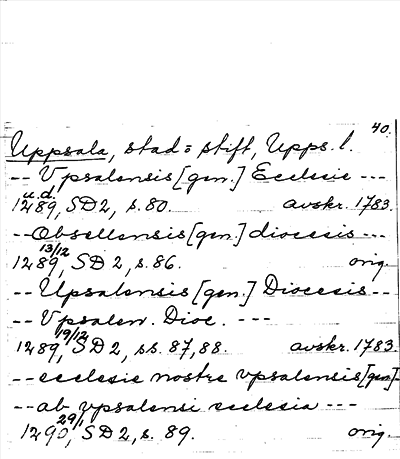 40.
Uppsala, stad = stift, Upps. l.
-- Vpsalensis [gen.] Ecclesie ---
u.d.
1289, SD 2, s. 80. avskr. 1783.
-- Obsellensis [gen.] diocesis ---
13/12
1289, SD 2, s. 86. orig.
-- Upsalensis [gen.] Diocesis --
-- Vpsalen. Dioc. ---
19/12
1289, SD 2, ss. 87, 88. avskr. 1783.
-- ecclesie nostre vpsalensis [gen.] --
-- ab vpsalensi ecclesia ---
29/1
1290, SD 2, s. 89. orig.